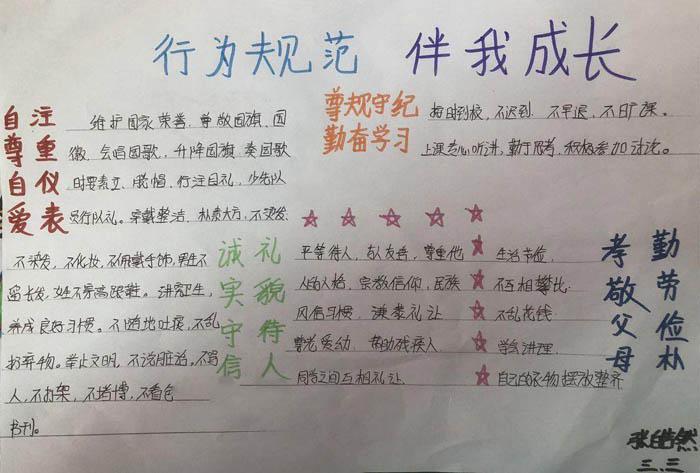 行为规范 伴我成长
自尊自爱
注重仪表
维护国家荣誉、尊敬国旗、国
徽、会唱国歌、升降国旗、奏国歌
时要肃立、脱帽、行注目礼,少先队
员行队礼。穿戴整洁、朴素大方,不烫发、
不染发,不化妆,不佩戴首饰,男生不
留长发,女生不穿高跟鞋。讲究卫生,
养成良好习惯。不随地吐痰,不乱
扔弃物。举止文明,不说脏话,不骂
人,不打架,不赌博,不看色
书刊。
尊规守纪
勤奋学习
按时到校,不迟到 不早退,不旷课。
上课专心听讲,勤于思考,积极参加讨论。
诚实守信
礼貌待人
平等待人,与人友善,尊重他
人的人格、宗教信仰、民族
风俗习惯,谦恭礼让
尊老爱幼 帮助残疾人
同学之间互相礼让
生活节俭,
不互相攀比
不乱花钱
学会料理
自己的衣物摆放整齐
孝敬父母
勤劳俭朴
张皓然
三、三